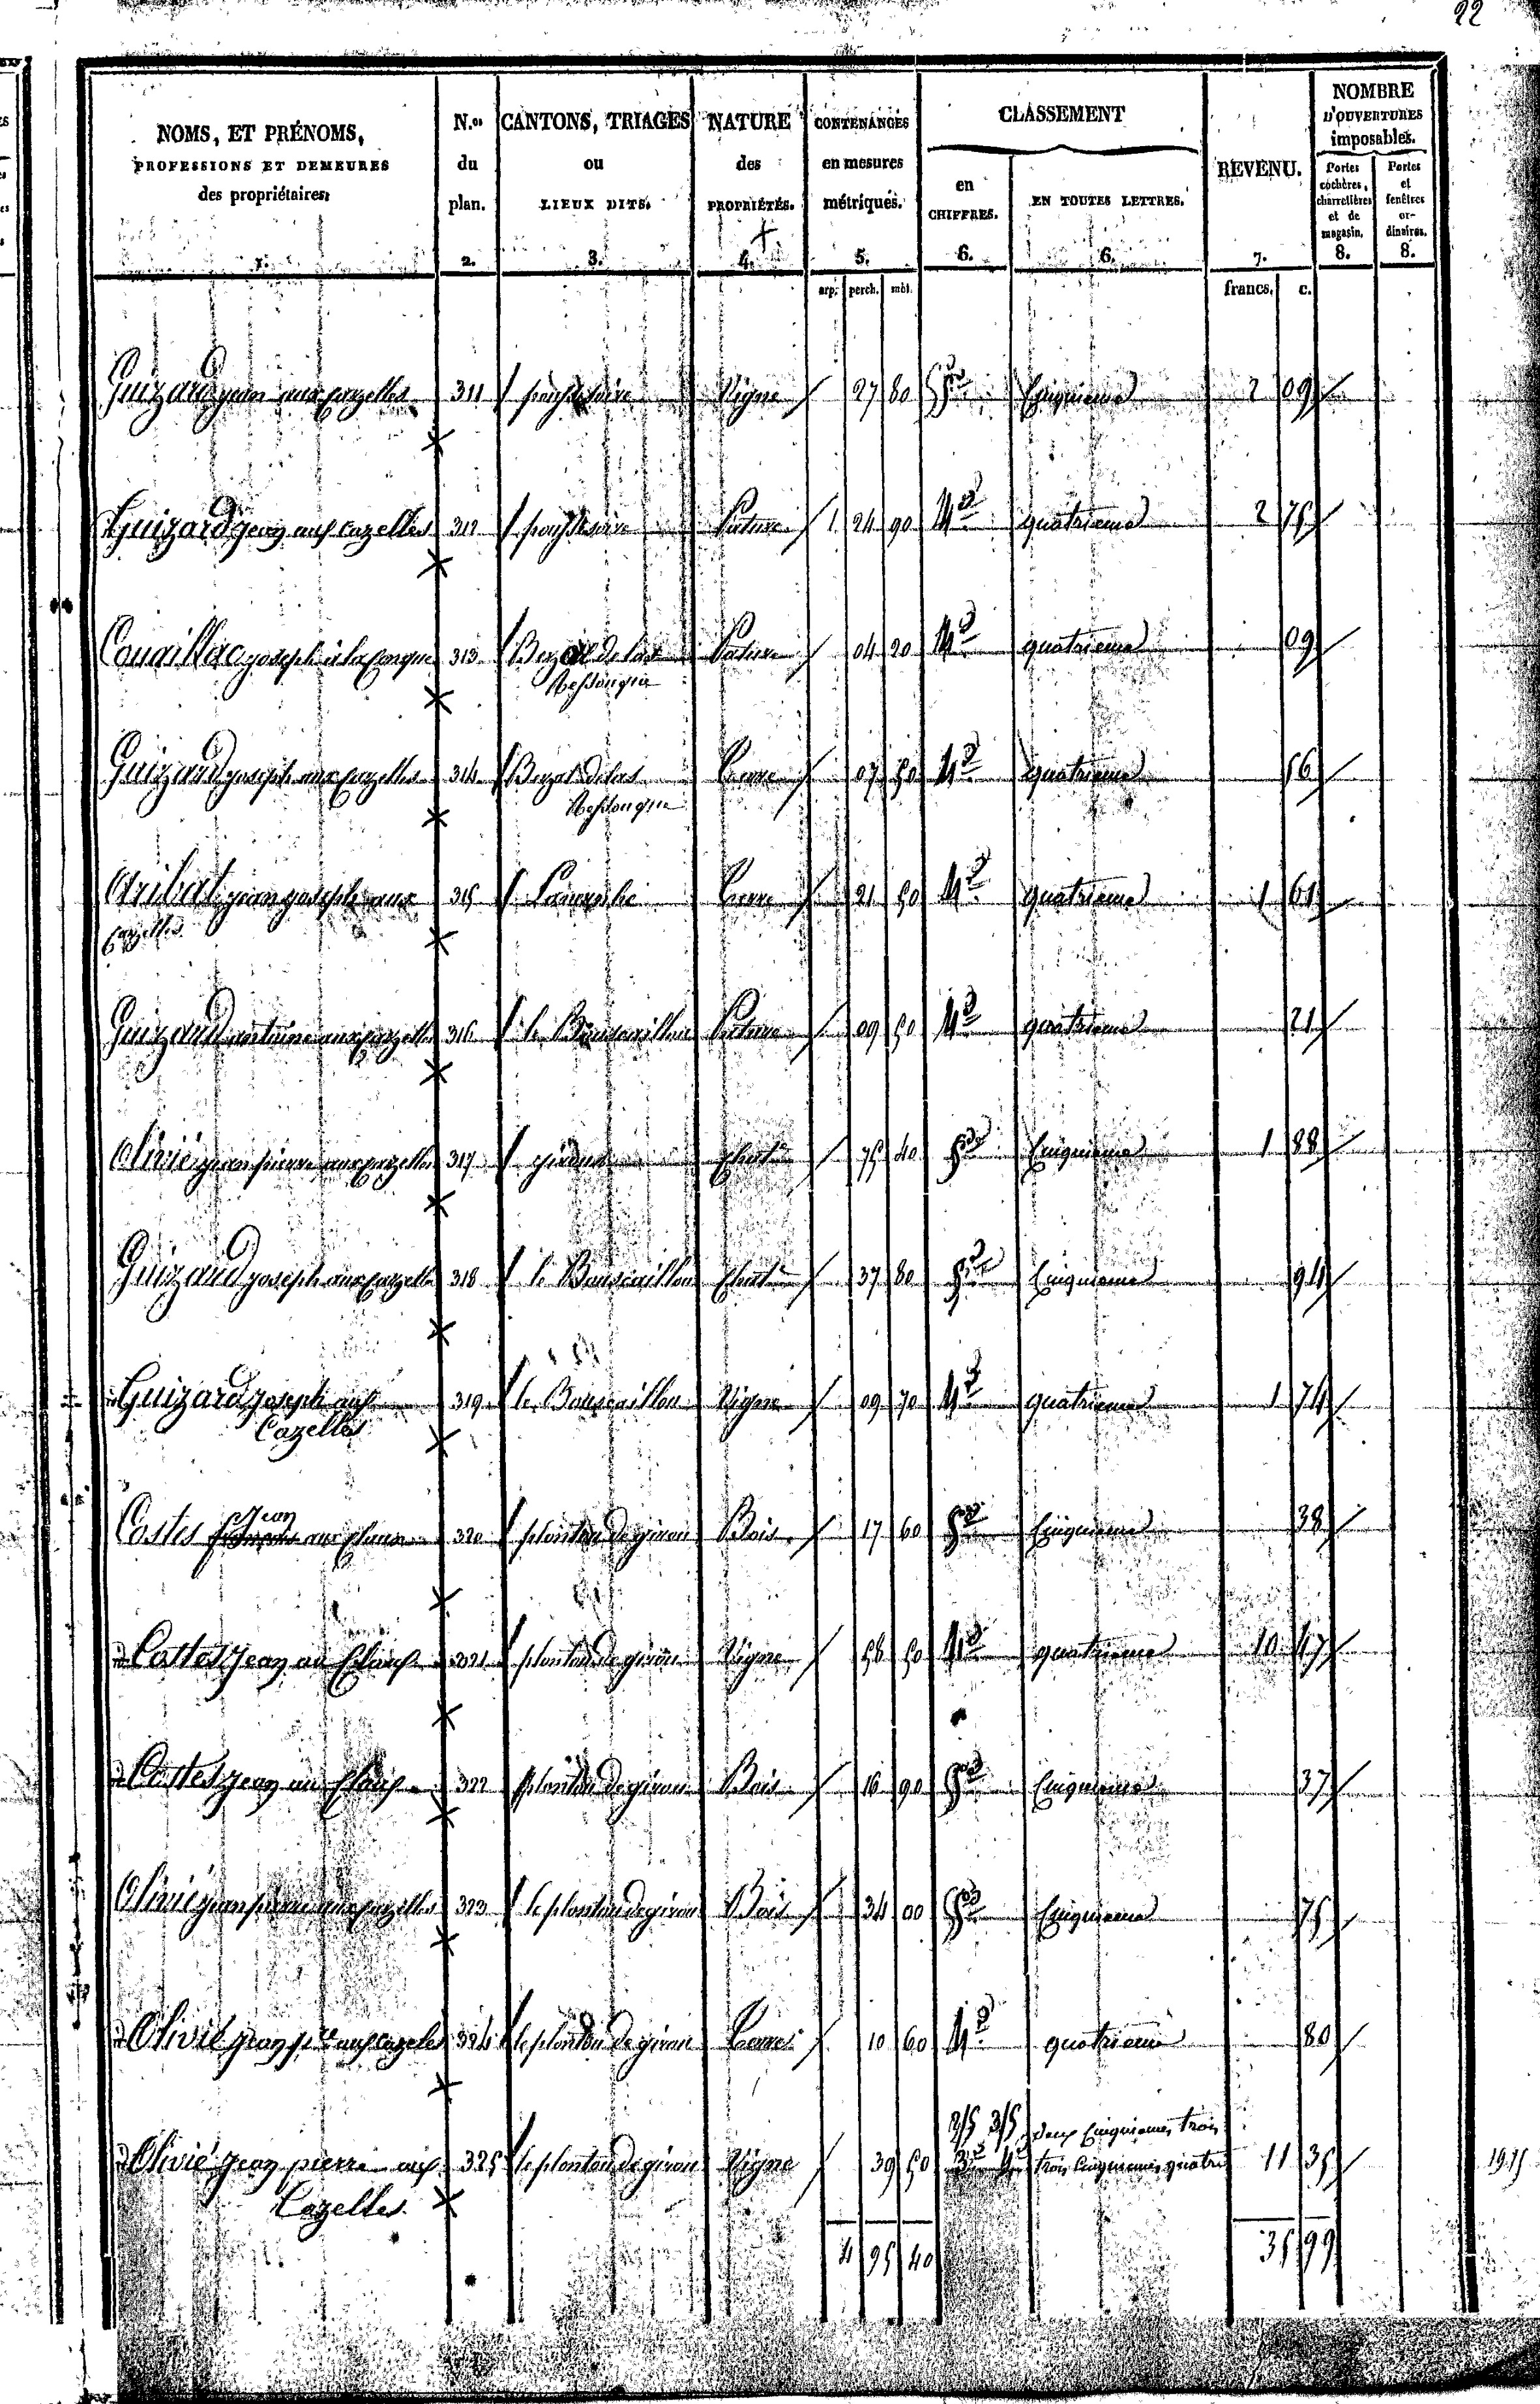 22
NOMS, ET PRÉNOMS,
PROFESSIONS ET DEMEURES
des propriétaires.
1.
N.os
du
plan.
2.
CANTONS, TRIAGES
ou
LIEUX DITS.
3.
NATURE
des
PROPRIÉTÉS.
4.
CONTENANCES
en mesures
métriques.
5.
CLASSEMENT
en
CHIFFRES.
6.
EN TOUTES LETTRES.
6.
REVENU.
7.
NOMBRE
D'OUVERTURES
imposables.
Portes
cochères,
charretières
et de
magasin.
8.
Portes
et
fenêtres
or-
dinaires.
8.
arp. perch. mèt. francs. c.
Guizard jean aux Cazelles 311 Vigne 27 80 5e Cinquieme 2 09
Guizard jean aux Cazelles 312 Pature 1 24 90 4e quatrieme 2 75
joseph à la 313 Bezal de las Pature 04 20 4e quatrieme 09
Guizard joseph aux Cazelles 314 Bezal de las Terre 07 50 4e quatrieme 56
Aribat jean joseph aux 315 Terre 21 50 4e quatrieme 1 61
Cazelles
Guizard antoine aux Cazelles 316 le Bouscaillou Pature 09 50 4e quatrieme 21
Olivié jean pierre aux Cazelles 317 Chat 75 40 5e Cinquieme 1 88
Guizard joseph aux Cazelles 318 le Bouscaillou Chat 37 80 5e Cinquieme 94
Guizard joseph aux 319 le Bouscaillou Vigne 09 70 4e quatrieme 1 74
Cazelles
Costes Jean au Claux 320 plantou de girou Bois 17 60 5e Cinquieme 38
Costes Jean au Claux 321 plantou de girou Vigne 58 50 4e quatrieme 10 47
Costes Jean au Claux 322 plantou de girou Bois 16 90 5e Cinquieme 37
Olivié jean pierre aux Cazelles 323 le plantou de girou Bois 34 00 5e Cinquieme 75
Olivié Jean pre aux Cazelles 324 le plantou de girou Terre 10 60 4e quatrieme 80
2/5 3/5 deux Cinquiemes trois
Olivié Jean pierre aux 325 le plantou de girou Vigne 39 50 3e 4e trois Cinquiemes quatre 11 35
Cazelles
4 95 40 35 99